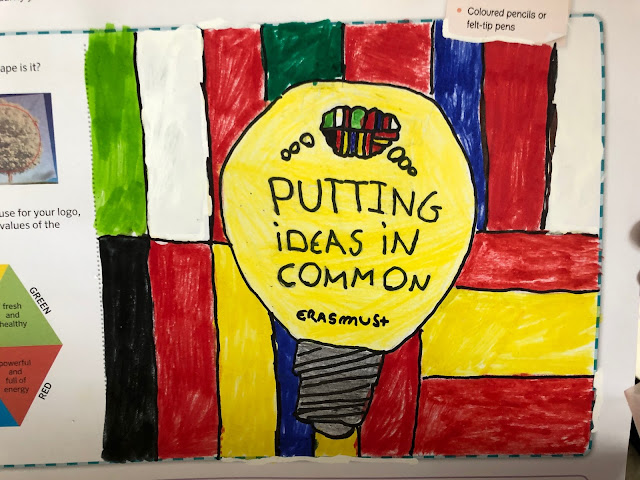 Coloured pencils or
felt-tip pens
ape is it?
use for your logo,
values of the
GREEN
fresh
and
healthy
powerful
and
full of
energy
RED
PUTTING
iDEAS iN
COMMON
ERASMUS+